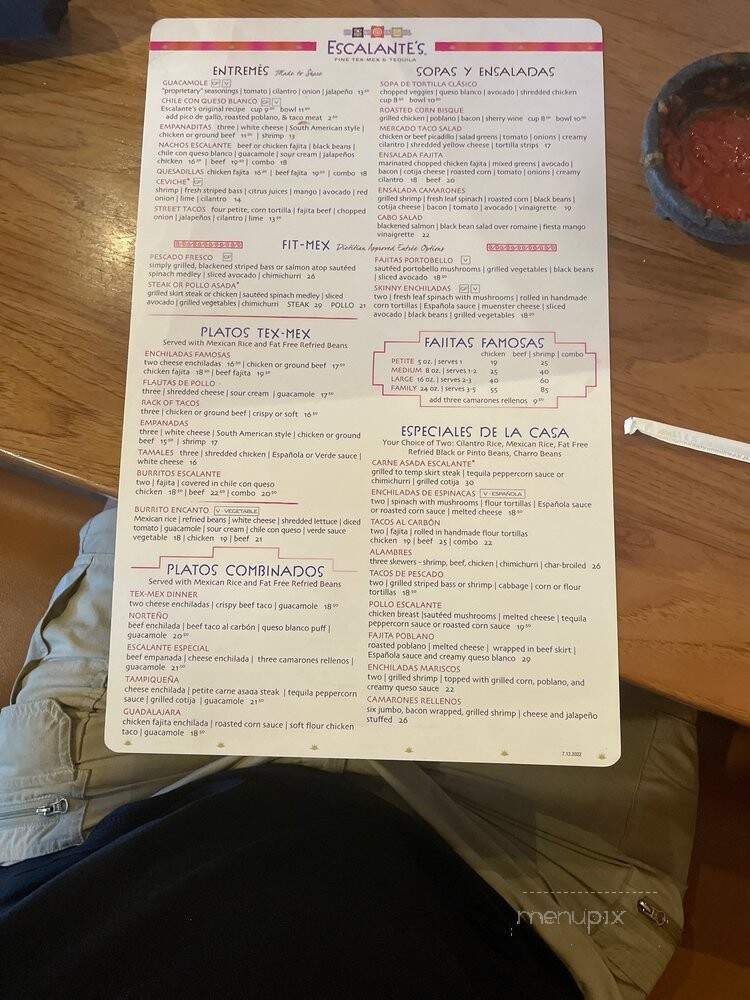 ESCALANTE'S
FINE TEX-MEX & TEQUILA
ENTREMÉS Made to Share
GUACAMOLE GF V
"proprietary" seasonings | tomato | cilantro | onion | jalapeño 13⁵⁰
CHILE CON QUESO BLANCO GF V
Escalante's original recipe cup 9⁵⁰ bowl 11⁵⁰
add pico de gallo, roasted poblano, & taco meat 2⁵⁰
EMPANADITAS three | white cheese | South American style |
chicken or ground beef 11⁵⁰ | shrimp 13
NACHOS ESCALANTE beef or chicken fajita | black beans |
chile con queso blanco | guacamole | sour cream | jalapeños
chicken 16⁵⁰ | beef 19⁵⁰ | combo 18
QUESADILLAS chicken fajita 16⁵⁰ | beef fajita 19⁵⁰ | combo 18
CEVICHE* GF
shrimp | fresh striped bass | citrus juices | mango | avocado | red
onion | lime | cilantro 14
STREET TACOS four petite, corn tortilla | fajita beef | chopped
onion | jalapeños | cilantro | lime 13⁵⁰
SOPAS Y ENSALADAS
SOPA DE TORTILLA CLÁSICO
chopped veggies | queso blanco | avocado | shredded chicken
cup 8⁵⁰ bowl 10⁵⁰
ROASTED CORN BISQUE
grilled chicken | poblano | bacon | sherry wine cup 8⁵⁰ bowl 10⁵⁰
MERCADO TACO SALAD
chicken or beef picadillo | salad greens | tomato | onions | creamy
cilantro | shredded yellow cheese | tortilla strips 17
ENSALADA FAJITA
marinated chopped chicken fajita | mixed greens | avocado |
bacon | cotija cheese | roasted corn | tomato | onions | creamy
cilantro 18 beef 20
ENSALADA CAMARONES
grilled shrimp | fresh leaf spinach | roasted corn | black beans |
cotija cheese | bacon | tomato | avocado | vinaigrette 19
CABO SALAD
blackened salmon | black bean salad over romaine | fiesta mango
vinaigrette 22
FIT-MEX Dietitian Approved Entrée Options
PESCADO FRESCO GF
simply grilled, blackened striped bass or salmon atop sautéed
spinach medley | sliced avocado | chimichurri 26
STEAK OR POLLO ASADA*
grilled skirt steak or chicken | sautéed spinach medley | sliced
avocado | grilled vegetables | chimichurri STEAK 29 POLLO 21
FAJITAS PORTOBELLO V
sautéed portobello mushrooms | grilled vegetables | black beans
| sliced avocado 18
SKINNY ENCHILADAS GF V
two | fresh leaf spinach with mushrooms | rolled in handmade
corn tortillas | Española sauce | muenster cheese | sliced
avocado | black beans | grilled vegetables 18⁵⁰
PLATOS TEX-MEX
Served with Mexican Rice and Fat Free Refried Beans
ENCHILADAS FAMOSAS
two cheese enchiladas 16⁵⁰ | chicken or ground beef 17⁵⁰
chicken fajita 18⁵⁰ | beef fajita 19⁵⁰
FLAUTAS DE POLLO
three | shredded cheese | sour cream | guacamole 17⁵⁰
RACK OF TACOS
three | chicken or ground beef | crispy or soft 16⁵⁰
EMPANADAS
three | white cheese | South American style | chicken or ground
beef 15⁵⁰ | shrimp 17
TAMALES three | shredded chicken | Española or Verde sauce |
white cheese 16
BURRITOS ESCALANTE
two | fajita | covered in chile con queso
chicken 18⁵⁰ | beef 22⁵⁰ | combo 20⁵⁰
BURRITO ENCANTO V - VEGETABLE
Mexican rice | refried beans | white cheese | shredded lettuce | diced
tomato | guacamole | sour cream | chile con queso | verde sauce
vegetable 18 | chicken 19 | beef 21
PLATOS COMBINADOS
Served with Mexican Rice and Fat Free Refried Beans
TEX-MEX DINNER
two cheese enchiladas | crispy beef taco | guacamole 18⁵⁰
NORTEÑO
beef enchilada | beef taco al carbón | queso blanco puff |
guacamole 20⁵⁰
ESCALANTE ESPECIAL
beef empanada | cheese enchilada | three camarones rellenos |
guacamole 21⁵⁰
TAMPIQUEÑA
cheese enchilada | petite carne asada steak | tequila peppercorn
sauce | grilled cotija | guacamole 21⁵⁰
GUADALAJARA
chicken fajita enchilada | roasted corn sauce | soft flour chicken
taco | guacamole 18⁵⁰
FAJITAS FAMOSAS
chicken beef | shrimp | combo
PETITE 5 oz. | serves 1 19 25
MEDIUM 8 oz. | serves 1-2 25 40
LARGE 16 oz. | serves 2-3 40 60
FAMILY 24 oz. | serves 3-5 55 85
add three camarones rellenos 9⁵⁰
ESPECIALES DE LA CASA
Your Choice of Two: Cilantro Rice, Mexican Rice, Fat Free
Refried Black or Pinto Beans, Charro Beans
CARNE ASADA ESCALANTE*
grilled to temp skirt steak | tequila peppercorn sauce or
chimichurri | grilled cotija 30
ENCHILADAS DE ESPINACAS V - ESPAÑOLA
two | spinach with mushrooms | flour tortillas | Española sauce
or roasted corn sauce | melted cheese 18⁵⁰
TACOS AL CARBÓN
two | fajita | rolled in handmade flour tortillas
chicken 19 | beef 25 | combo 22
ALAMBRES
three skewers - shrimp, beef, chicken | chimichurri | char-broiled 26
TACOS DE PESCADO
two | grilled striped bass or shrimp | cabbage | corn or flour
tortillas 18⁵⁰
POLLO ESCALANTE
chicken breast |sautéed mushrooms | melted cheese | tequila
peppercorn sauce or roasted corn sauce 19⁵⁰
FAJITA POBLANO
roasted poblano | melted cheese | wrapped in beef skirt |
Española sauce and creamy queso blanco 29
ENCHILADAS MARISCOS
two | grilled shrimp | topped with grilled corn, poblano, and
creamy queso sauce 22
CAMARONES RELLENOS
six jumbo, bacon wrapped, grilled shrimp | cheese and jalapeño
stuffed 26
7.13.2022
menupix